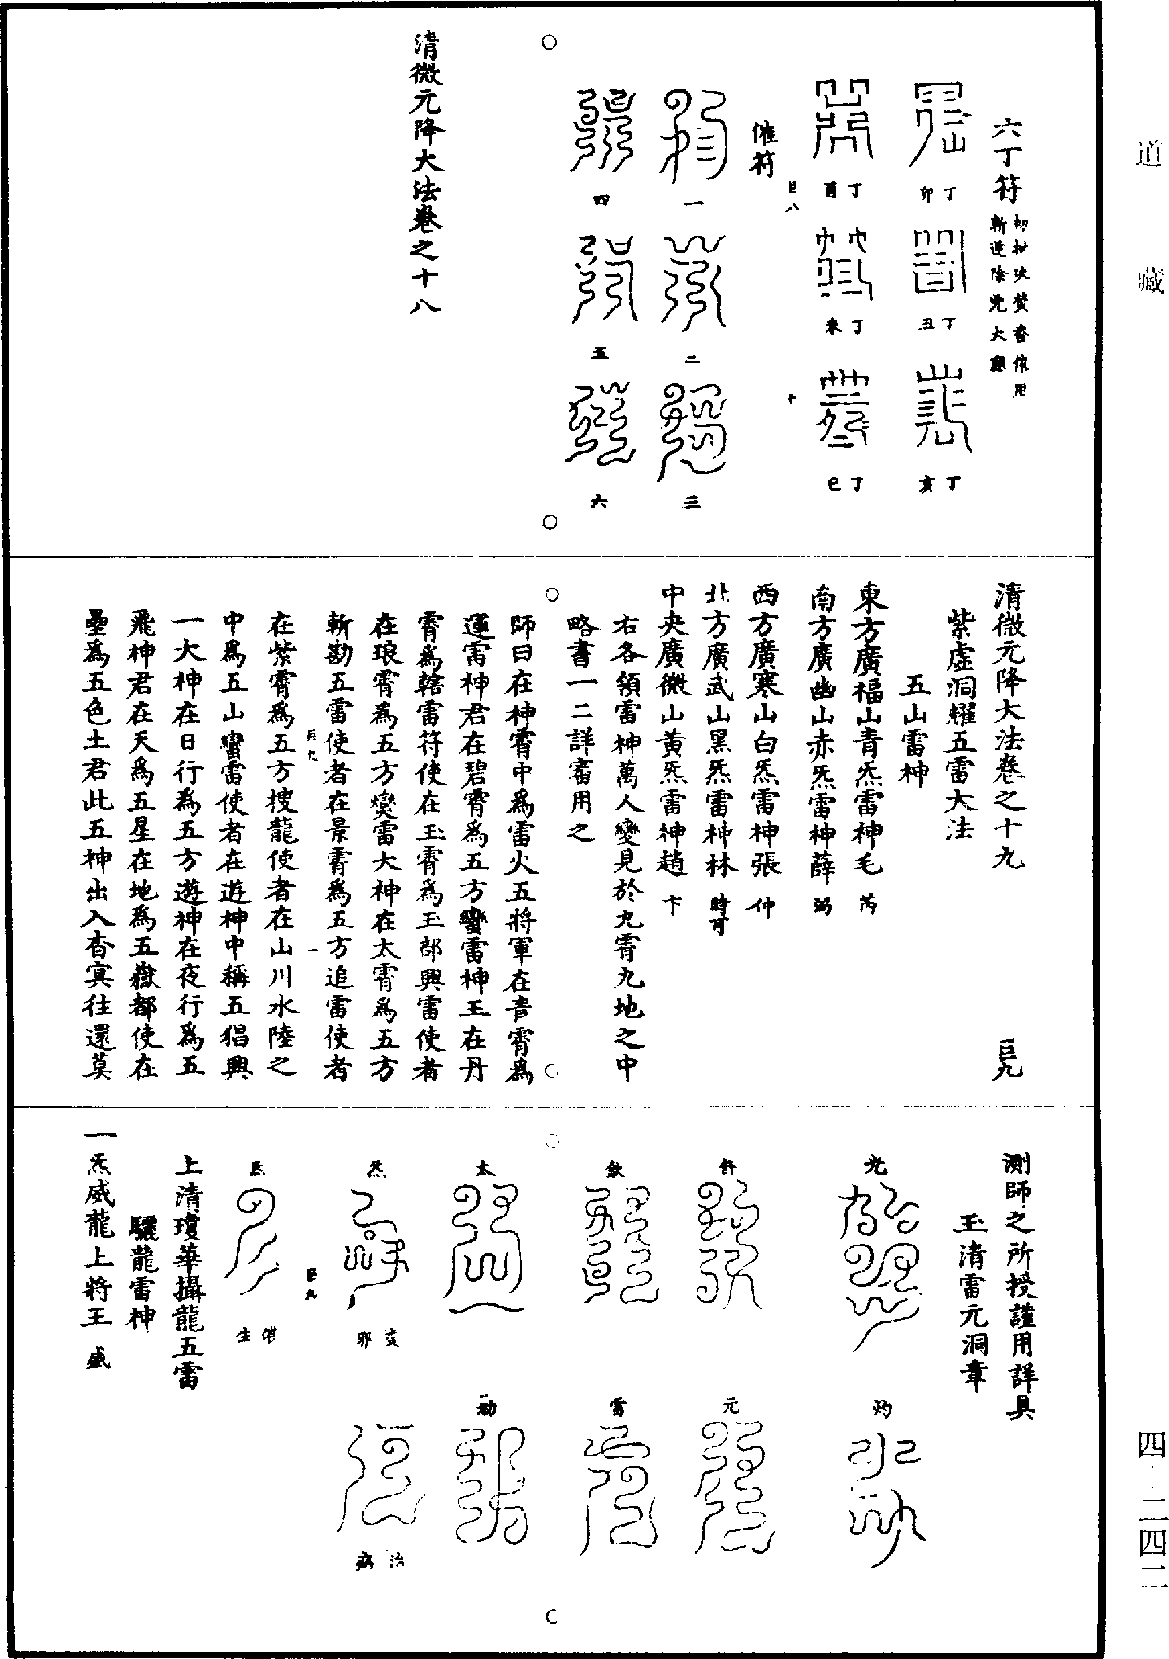 道藏
六丁符
丁卯
丁丑
丁亥
丁酉
丁未
丁巳
催符
一
二
三
四
五
六
清微元降大法卷之十八
清微元降大法卷之十九
巨九
紫虛洞耀五雷大法
五山雷神
東方廣福山青炁雷神毛
南方廣幽山赤炁雷神薛
西方廣寒山白炁雷神張 仲
北方廣武山黑炁雷神林 時可
中央廣微山黃炁雷神趙 卞
右各領雷神萬人變見於九霄九地之中
略書一二詳審用之
師曰在神霄中為雷火五將軍在青霄為
運雷神君在碧霄為五方蠻雷神王在丹
霄為轄雷符使在玉霄為玉部興雷使者
在琅霄為五方爕雷大神在太霄為五方
斬勘五雷使者在景霄為五方追雷使者
在紫霄為五方搜龍使者在山川水陸之
中為五山蠻雷使者在遊神中稱五猖興
一大神在日行為五方遊神在夜行為五
飛神君在天為五星在地為五嶽都使在
壘為五色土君此五神出入杳冥往還莫
測師之所授謹用詳具
玉清雷元洞章
光
灼
元
欻
雷
太
勅
炁
亥
治
病
催生
上清瓊華攝龍五雷
驪龍雷神
一炁威龍上將王 盛
四·二四二